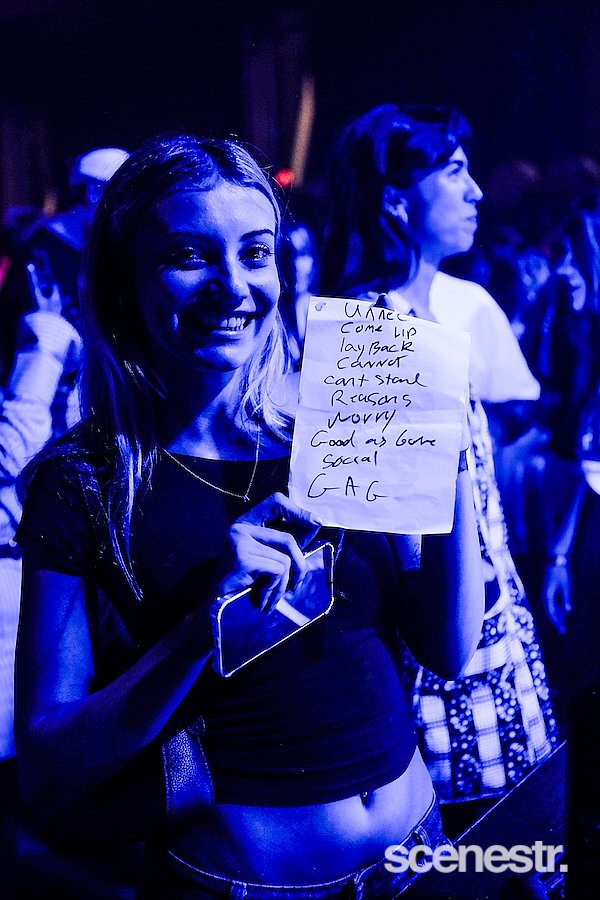 Come up
lay Back
Cannot
cant stand
Reasons
Worry
Good as Gone
social
GAG
scenestr.